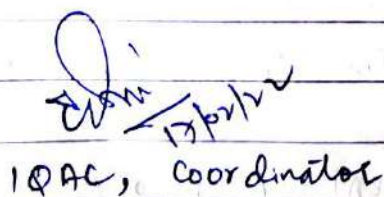 17/02/22
IQAC, Coordinator